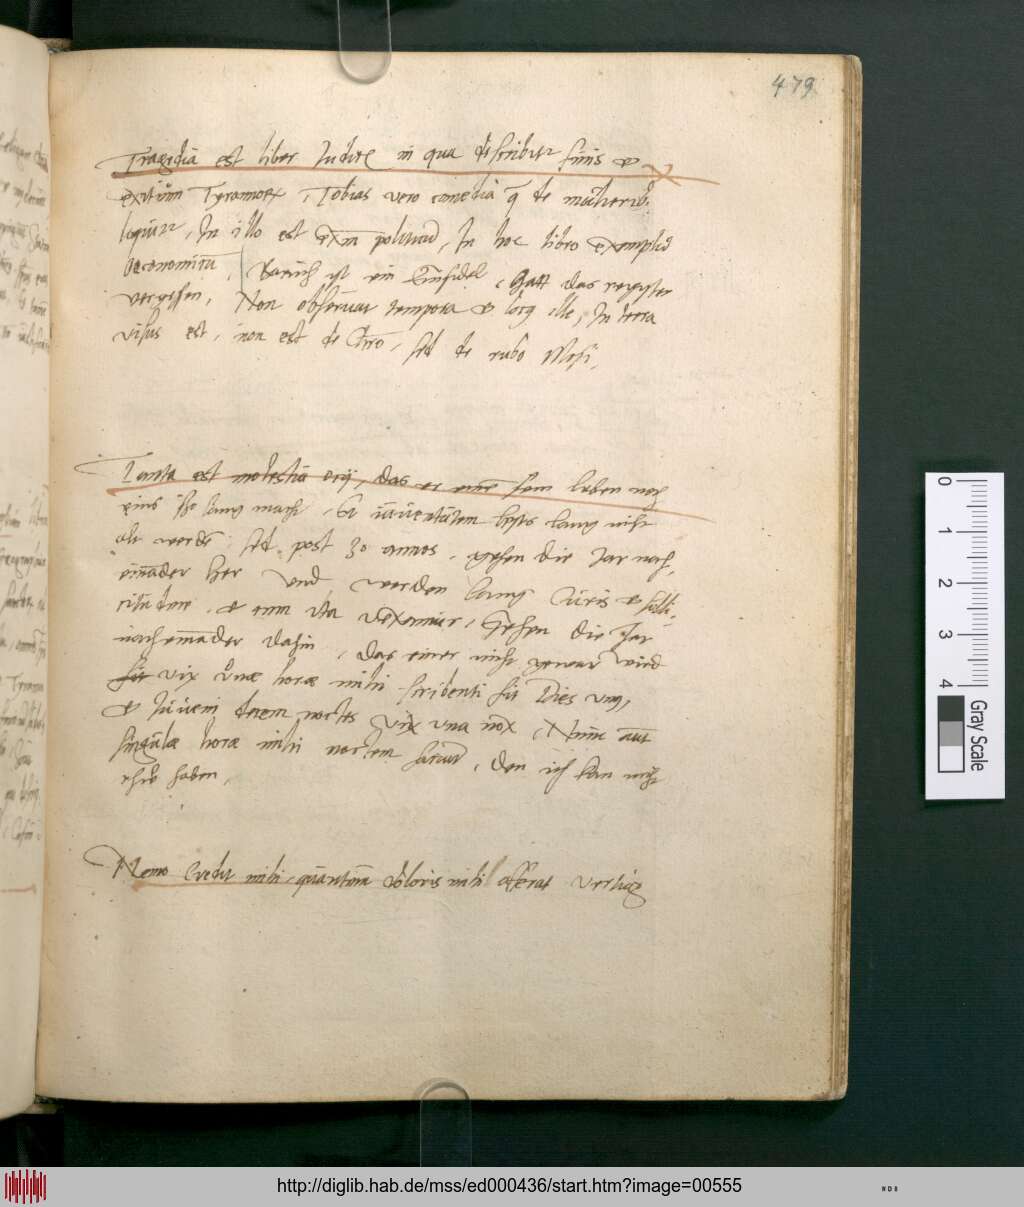 479
Tragedia est liber Judith in qua describitur finis et
exitium Tyrannorum, Tobias vero comedia que de mulieribus
loquitur, In illo est exem politicum, In hoc libro exemplum
oeconomicum, Baruch ist ein gut fidel, hatt das register
vergessen, Non observat tempora et loca ille, In terra
visus est, non est de Christo, sed de rubo Mosi,
Tanta est molestia das er eim sein leben noch
eins so lang macht. In iuventutem lests lang nicht
alt werden, sed post 30 annos, gehen die Jar nach
einander her und werden lang curis et solli
citudine, et cum ita vexamur, Gehen die Jar
nach einander dahin, das einer nicht gewar wird
vix unae horae mihi scribenti fit Dies unus,
et Juveni decem noctes vix una nox, Nunc autem
singulae horae mihi noctem faciunt, den ich kan nicht
rhw haben,
Nemo Credit mihi, quantum doloris mihi afferat vertigo
0
1
2
3
4
Gray Scale
http://diglib.hab.de/mss/ed000436/start.htm?image=00555